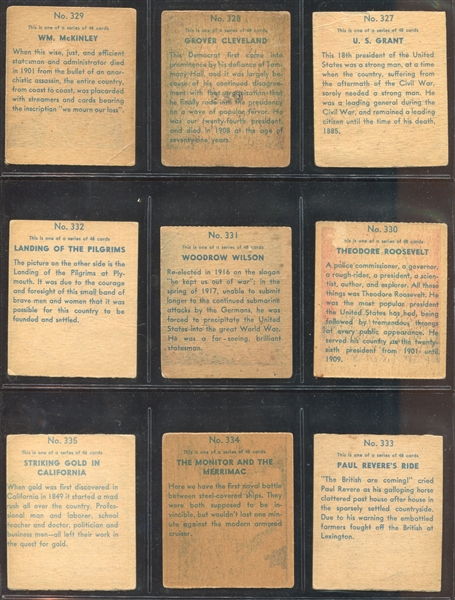 No. 329
This is one of a series of 48 cards
WM. McKINLEY
When this wise, just, and efficient
statesman and administrator died
in 1901 from the bullet of an anar-
chistic assassin, the entire country,
from coast to coast, was placarded
with streamers and cards bearing
the inscription "we mourn our loss".
No. 328
This is one of a series of 48 cards
GROVER CLEVELAND
This Democrat first came into
prominence by his defiance of Tam-
many Hall, and it was largely be-
cause of his continued disagree-
ment with this organization that
he finally rode into the presidency
on a wave of popular fervor. He
was our twenty-fourth president,
and died in 1908 at the age of
seventy-nine years?
No. 327
This is one of a series of 48 cards
U. S. GRANT
This 18th president of the United
States was a strong man, at a time
when the country, suffering from
the aftermath of the Civil War,
sorely needed a strong man. He
was a leading general during the
Civil War, and remained a leading
citizen until the time of his death,
1885.
No. 332
This is one of a series of 48 cards
LANDING OF THE PILGRIMS
The picture on the other side is the
Landing of the Pilgrims at Ply-
mouth. It was due to the courage
and foresight of this small band of
brave men and women that it was
possible for this country to be
founded and settled.
No. 331
This is one of a series of 48 cards
WOODROW WILSON
Re-elected in 1916 on the slogan
"he kept us out of war"; in the
spring of 1917, unable to submit
longer to the continued submarine
attacks by the Germans, he was
forced to precipitate the United
States into the great World War.
He was a far-seeing, brilliant
statesman.
No. 330
This is one of a series of 48 cards
THEODORE ROOSEVELT
A police commissioner, a governor,
a rough-rider, a president, a scien-
tist, author, and explorer. All these
things was Theodore Roosevelt. He
was the most popular president
the United States has had, being
followed by tremendous throngs
at every public appearance. He
served his country as the twenty-
sixth president from 1901 until
1909.
No. 335
This is one of a series of 48 cards
STRIKING GOLD IN
CALIFORNIA
When gold was first discovered in
California in 1849 it started a mad
rush all over the country. Profes-
sional man and laborer, school
teacher and doctor, politician and
business men—all left their work in
the quest for gold.
No. 334
This is one of a series of 48 cards
THE MONITOR AND THE
MERRIMAC
Here we have the first naval battle
between steel-covered ships. They
were both supposed to be in-
vincible, but wouldn't last one min-
ute against the modern armored
cruiser.
No. 333
This is one of a series of 48 cards
PAUL REVERE'S RIDE
"The British are coming!" cried
Paul Revere as his galloping horse
clattered past house after house in
the sparsely settled countryside.
Due to his warning the embattled
farmers fought off the British at
Lexington.